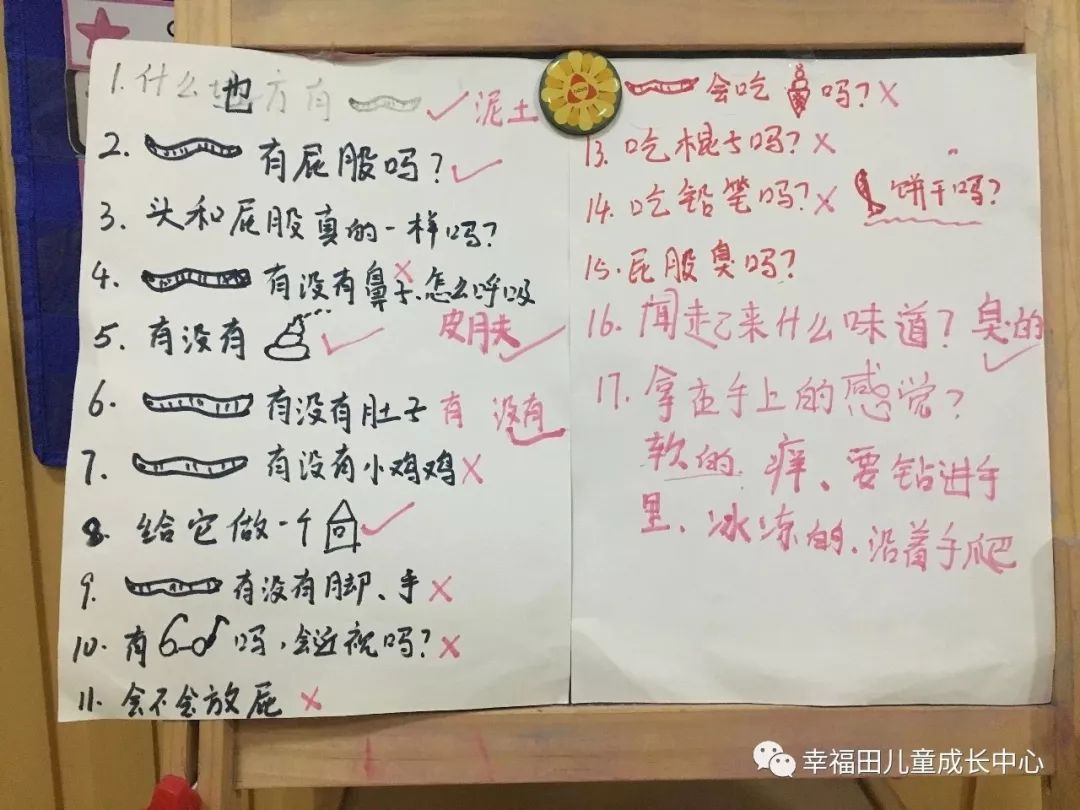 1. 什么地方有 ✓ 泥土
2. 有屁股吗? ✓
3. 头和屁股真的一样吗?
4. 有没有鼻子、怎么呼吸 ×
皮肤 ✓
5. 有没有 ✓
6. 有没有肚子 有 没有
7. 有没有小鸡鸡 ×
8. 给它做一个 ✓
9. 有没有脚、手 ×
10. 有 吗,会近视吗? ×
11. 会不会放屁 ×
会吃 吗? ×
13. 吃棍子吗? ×
14. 吃铅笔吗? × 饼干吗?
15. 屁股臭吗?
16. 闻起来什么味道? 臭的 ✓
17. 拿在手上的感觉?
软的、痒、要钻进手
里、冰冻的、沿着手爬
幸福田儿童成长中心